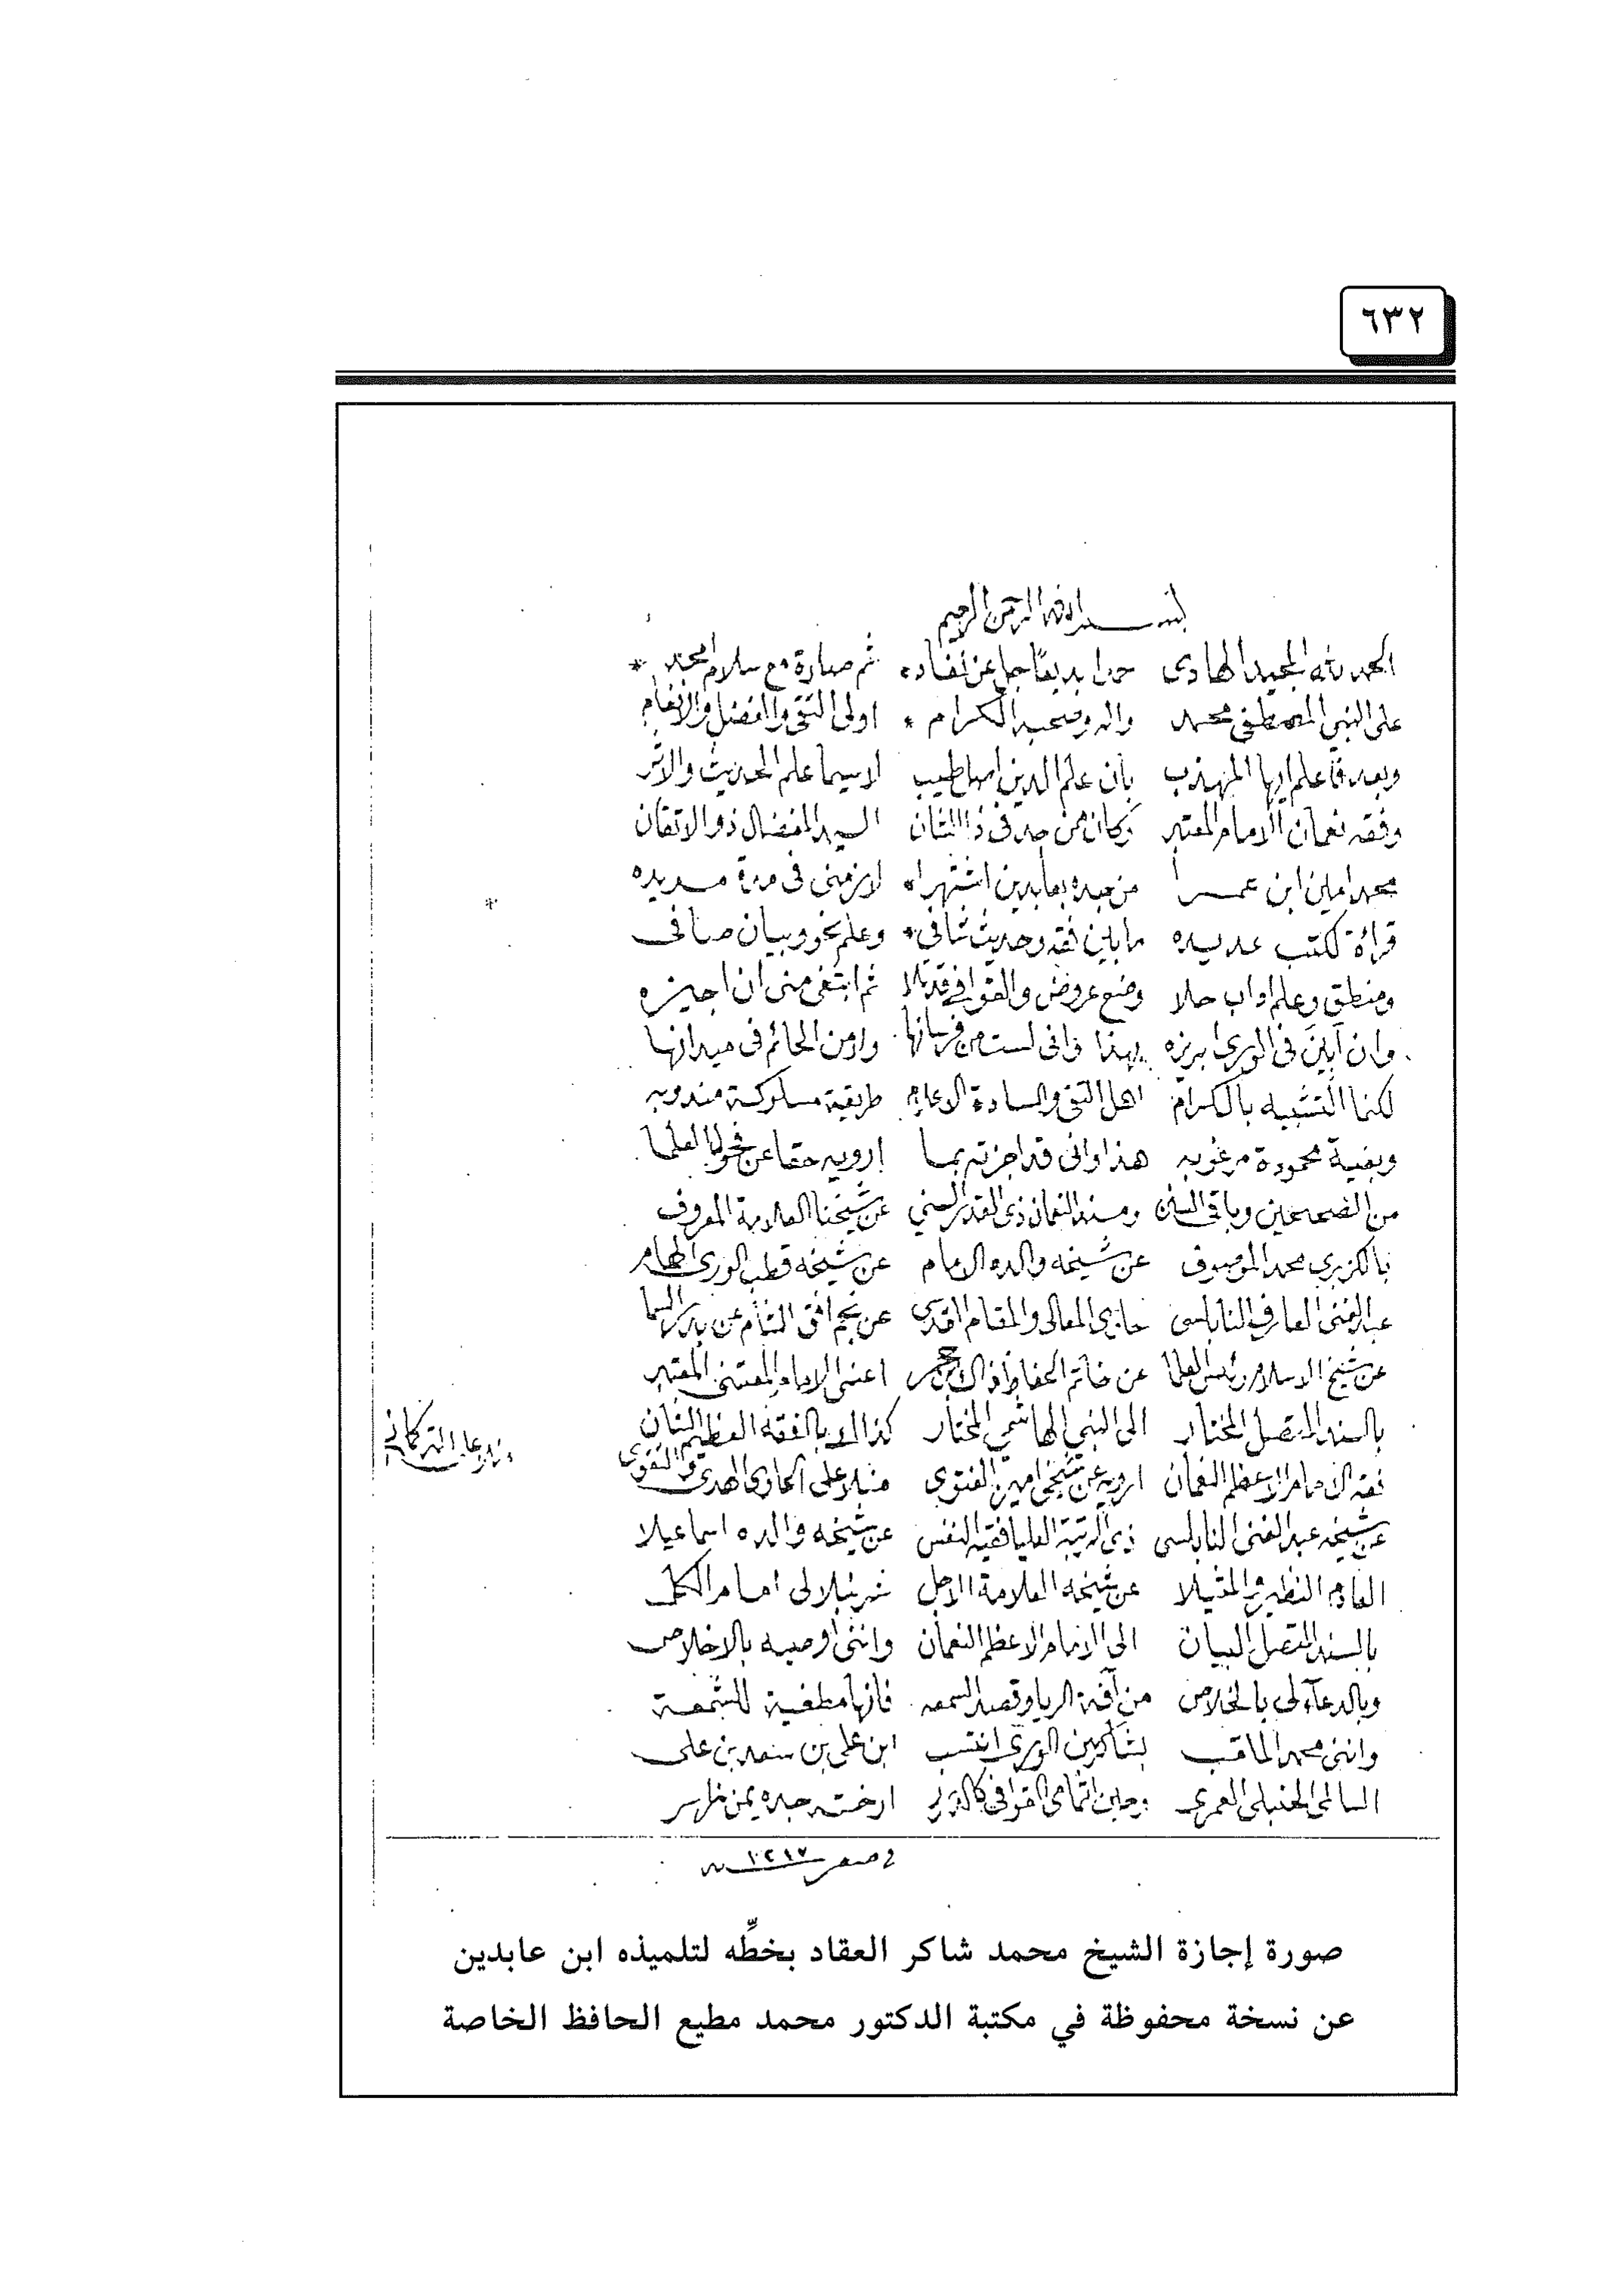 ٦٣٢
بسم الله الرحمن الرحيم
الحمد لله المجيد الهادى حمدا بديعا جل عن نفاد ثم صلاة مع سلام *
على النبي المصطفى محمد واله وصحبه الكرام * اولى التقى والفضل والانعام
وبعد فاعلم ايها المهذب بان علم الدين لاسيما علم الحديث والاثر
وفقه نعمان الامام المعتبر وكان ممن جد فى ذا الشان السيد المفضال ذو الاتقان
محمد امين ابن عمرا من جده بعابدين اشتهرا لازمنى فى مدة مديده
قرأة لكتب عديده ما بين فقه وحديث شافي * وعلم نحو وبيان صافى
ومنطق وعلم اداب حلا وضع عروض والقوافي قد تلا ثم ابتغى منى ان اجيزه
وان ابين فى الورى ابريزه بهذا وانى لست من فرسانها ولا من الحائم فى ميدانها
لكنما التشبيه بالكرام اهل التقى والسادة الاعلام طريقة مسلوكة مندوبه
وبغية محمودة مرغوبه هذا وانى قد اجزته بما ارويه حقا عن فحول العلما
من الصحيحين وباقى السنن ومسند النعمان ذى القدر السني عن شيخنا العلامة المعروف
بالكزبري محمد الموصوف عن شيخه والده الامام عن شيخه قطب الورى الهمام
عبد الغنى العارف النابلسى حاوي المعالى والمقام القدسى عن نجم افق الشام عن بدر السما
عن شيخ الاسلام رئيس العلما عن خاتم الحفاظ ذاك ابن حجر اعنى الامام المقتفى المعتبر
بالسند المتصل المختار الى النبي الهاشمي المختار كذاك بالفقه العظيم الشان
فقه الامام الاعظم النعمان ارويه عن شيخى امين الفتوى منلا على الحاوى الهدى والتقوى
منلا على التركمانى
عن شيخه عبد الغنى النابلسى ذى الرتبة العليا فقيه النفس عن شيخه والده اسماعيلا
العادم النظير والمثيلا عن شيخه العلامة الاجل شرنبلالى امام الكل
بالسند المتصل البيان الى الامام الاعظم النعمان واننى اوصيه بالاخلاص
وبالدعاء لى بالخلاص من آفة الريا وقصد السمعه فانها مطفية للشمعة
واننى محمد الملقب بشاكر بين الورى انتسب ابن على بن سعد بن على
السالمى الحنبلى العمرى وحين اتمامى القوافى كالدرر ارخته جده يمن ظهر
فى صفر ١٢١٧
صورة إجازة الشيخ محمد شاكر العقاد بخطِّه لتلميذه ابن عابدين
عن نسخة محفوظة في مكتبة الدكتور محمد مطيع الحافظ الخاصة